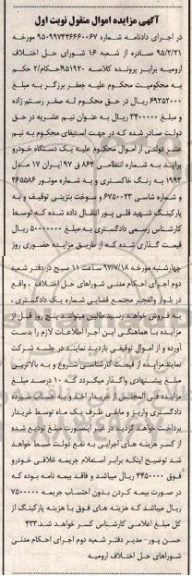 آگهی مزایده اموال منقول نوبت اول
در اجرای دادنامه شماره ۹۵۰۹۹۷۴۴۶۶۶۰۰۰۶۷ مورخه
۹۵/۲/۲۱ صادره از شعبه ۱۶ شورای حل اختلاف
ارومیه برابر پرونده کلاسه ۹۵۱۹۲۰ حکام/۲ حکم
به محکومیت محکوم علیه جعفر برزگر به مبلغ
۶۹۲۵۲۰۰۰ ریال در حق محکوم له صفر رستم زاده
و مبلغ ۳۴۰۰۰۰۰ ریال به عنوان نیم عشریه در حق
دولت صادر شده که در جهت استیفای محکوم به نیم
عشر دولتی از اموال محکوم علیه یک دستگاه خودرو
پراید به شماره انتظامی ۸۶۴ ق ۹۷ ایران ۱۷ مدل
۱۹۹۳ به رنگ خاکستری و به شماره موتور ۲۶۵۵۸۶
و شماره شاسی ۶۷۵۰۰۲۳ و سوخت بنزینی توقیف و به
پارکینگ شهید قلی پور انتقال داده شده که توسط
کارشناس رسمی دادگستری به مبلغ ۵۰۰۰۰۰۰۰ ریال
قیمت گذاری شده که از طریق مزایده حضوری روز
چهارشنبه مورخه ۹۷/۷/۱۸ ساعت ۱۱ صبح در دفتر شعبه
دوم اجرای احکام مدنی شوراهای حل اختلاف ، واقع
در بلوار والفجر مجتمع قضایی شماره یک دادگستری ،
به فروش خواهد رسید طالبین میتوانند پنج روز قبل از
مزایده با هماهنگی این اجرا اطلاعات لازم را بدست
آورده و از اموال توقیفی بازدید نمایند در جلسه شرکت
نمایند مزایده از قیمت کارشناسی شروع و به بالاترین
مبلغ پیشنهادی واگذار میگردد که ۱۰ درصد مبلغ
مزایده فی المجلس از خریدار اخذ و به حساب سپرده
دادگستری واریز و مابقی ظرف یک ماه توسط خریدار
پرداخت خواهد گردید در غیر اینصورت مبلغ تودیع شده
از کسر هزینه های اجرایی به نفع دولت ضبط خواهد
شد توضیح اینکه برابر استعلام جریمه خلافی خودرو
فوق ۳۴۵۰۰۰۰ ریال میباشد و فاقد بیمه نامه بوده که
در صورت بیمه کردن بدون احتساب جریمه ۷۵۰۰۰۰۰
ریال میباشد که هزینه های فوق با هزینه پارکینگ از
کل مبلغ اعلامی کارشناس کسر خواهد شد. ۴۳۳
حسن پور – مدیر دفتر شعبه دوم اجرای احکام مدنی
شوراهای حل اختلاف ارومیه